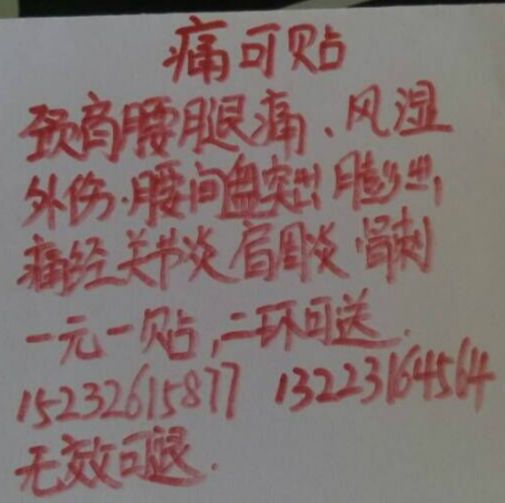 痛可贴
颈肩腰腿痛、风湿
外伤.腰间盘突出 膨出,
痛经关节炎肩周炎.骨刺
一元一贴,二环可送.
15232615877 13223164564
无效可退.